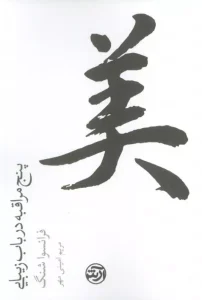 美
پنج مراقبه در باب زیبایی
فرانسوا شنگ
مریم امینی مهر